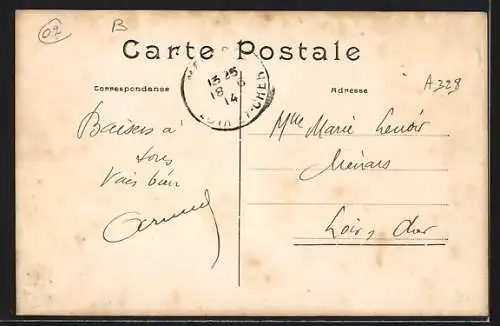 02
B
Carte Postale
13 25
18 6
14
LOIR-ET-CHER
Correspondance
Adresse
A328
Baisers à
tous
Vais bien
Mlle Marie Lenoir
Ménars
Loir & Cher